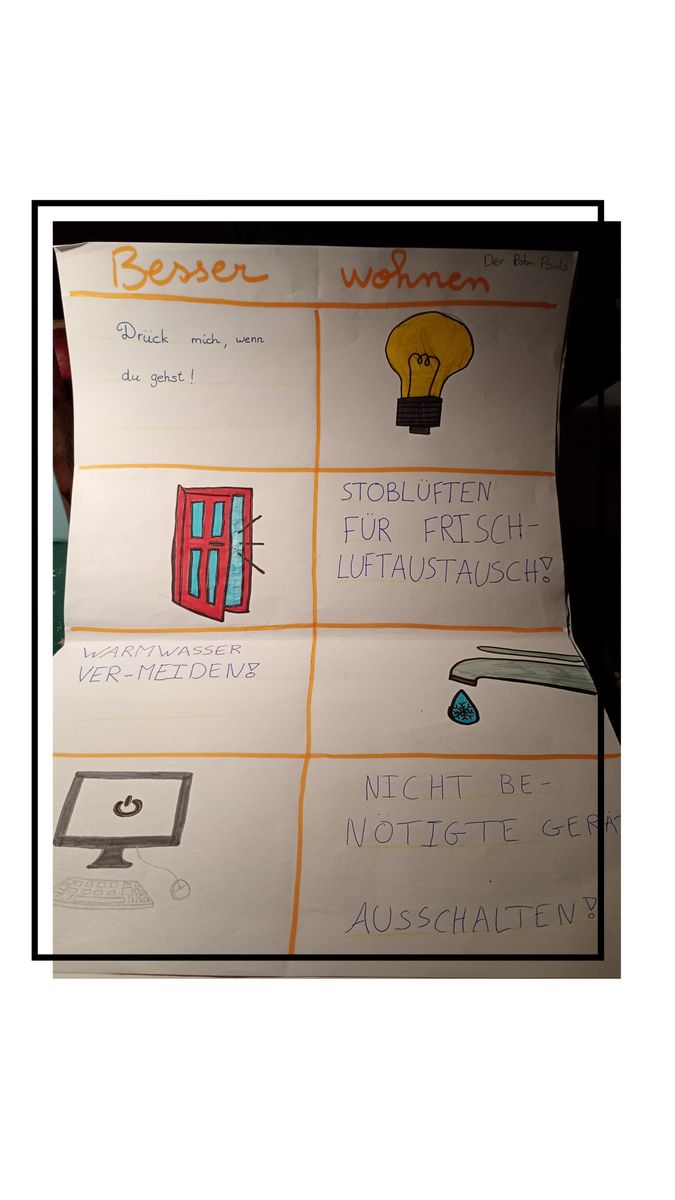 Besser wohnen
Der Roten Panda
Drück mich, wenn
du gehst!
STOßLÜFTEN
FÜR FRISCH-
LUFTAUSTAUSCH!
WARMWASSER
VER-MEIDEN!
NICHT BE-
NÖTIGTE GERÄT
AUSSCHALTEN!